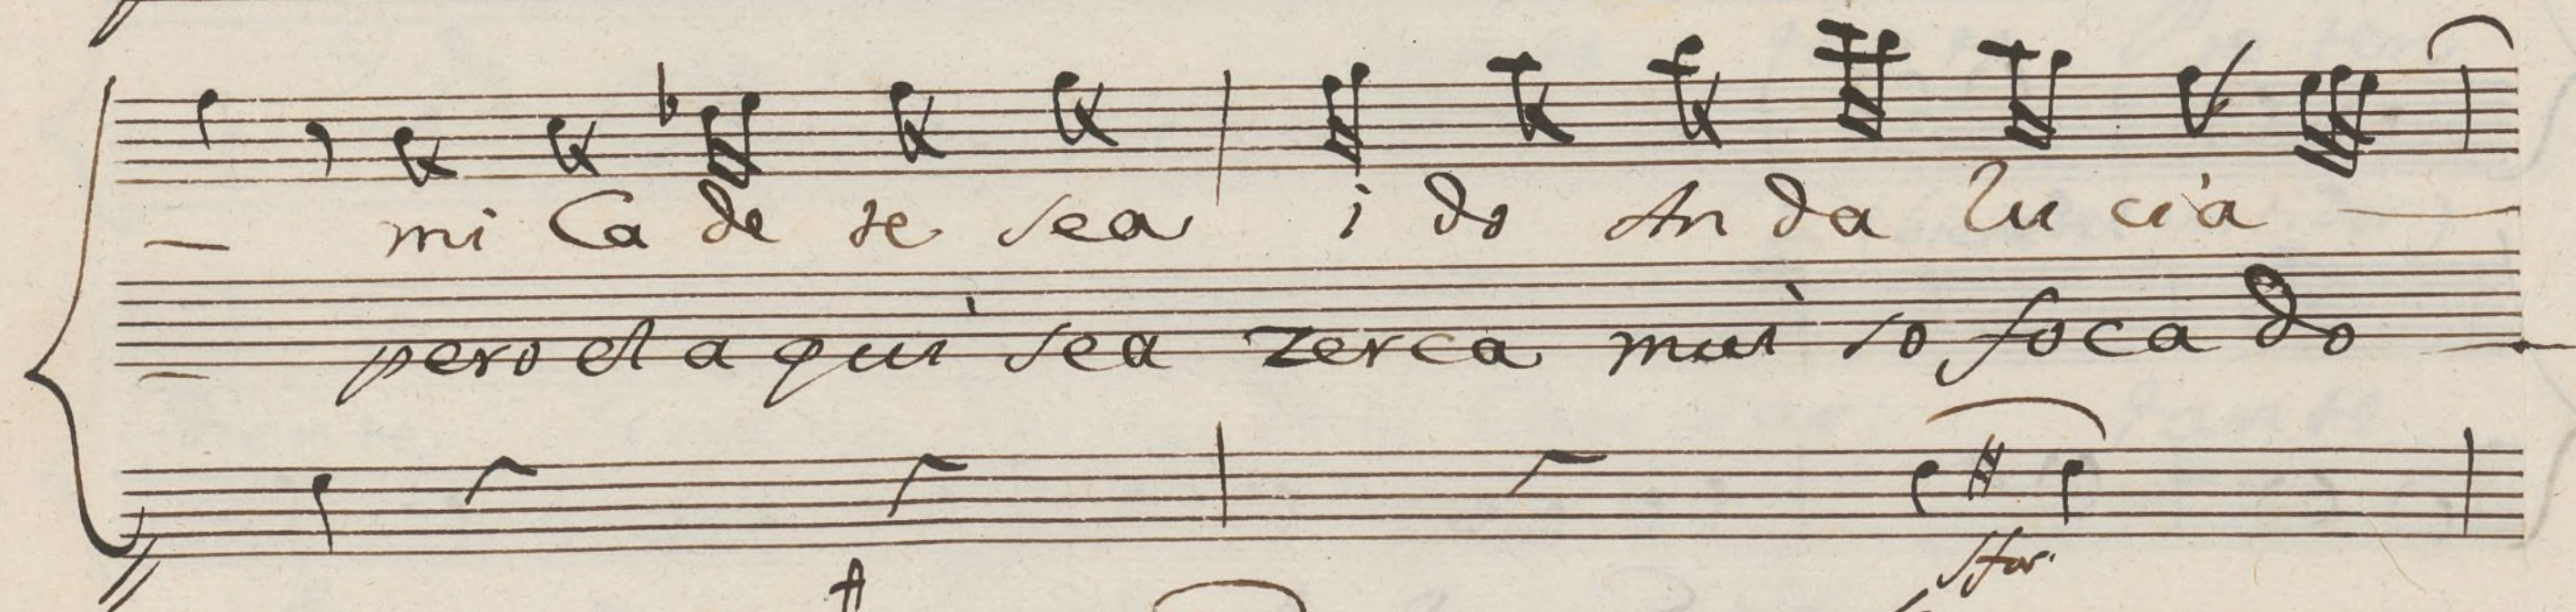 mi Ca de te sea i do An da lu cià
pero el a quì sea zerca muì so foca do
sfor.